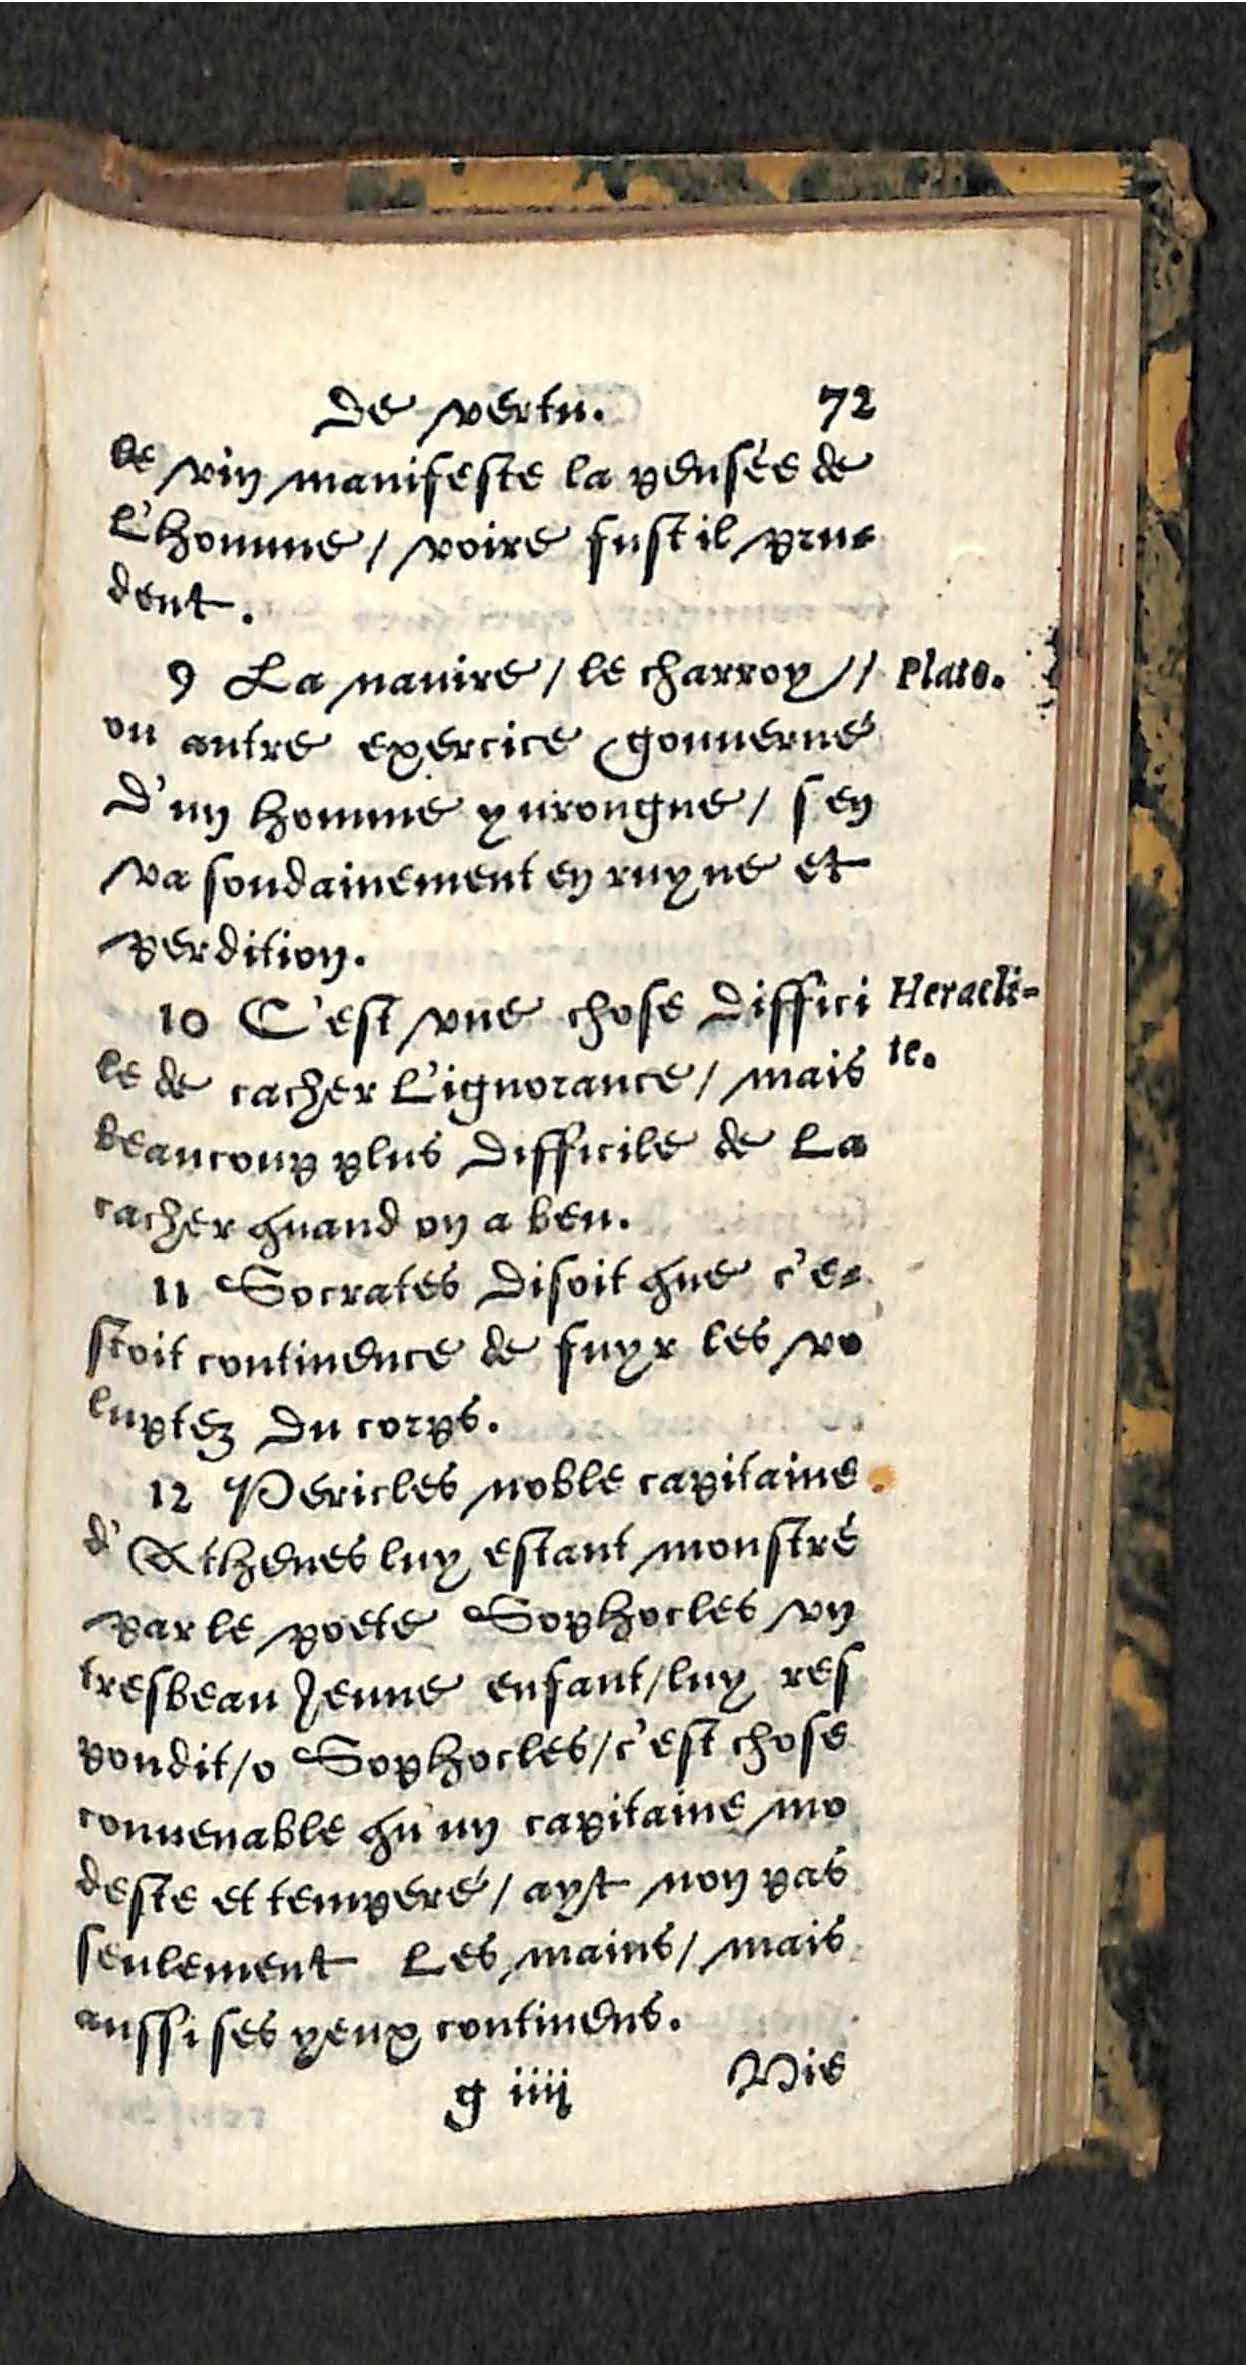 De vertu. 72
le vin manifeste la pensée de
l'homme / voire fust il pru-
dent.
9 La nauire / le charroy / Plato.
ou autre exercice gouuerné
d'un homme yurongne / s'en
va soudainement en ruyne et
perdition.
10 C'est vne chose diffici Heracli-
le de cacher l'ignorance / mais te.
beaucoup plus difficile de la
cacher quand on a beu.
11 Socrates disoit que c'e-
stoit continence de fuyr les vo
luptez du corps.
12 Pericles noble capitaine
d'Athenes luy estant monstré
par le poete Sophocles vn
tresbeau Jeune enfant / luy res
pondit / o Sophocles / c'est chose
conuenable qu'un capitaine mo
deste et temperé / ayt non pas
seulement les mains / mais
aussi ses yeux continens.
g iiij Vie